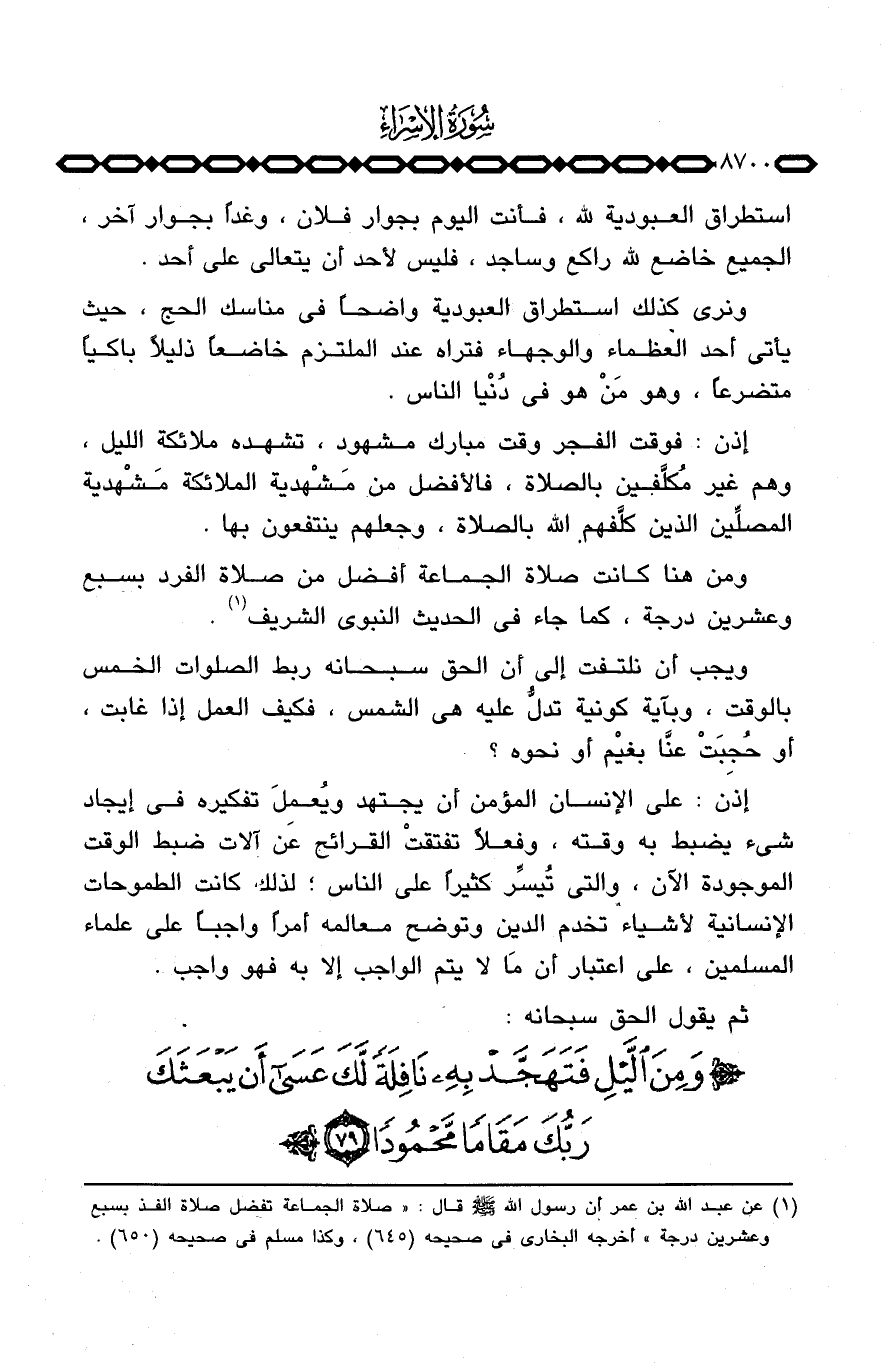 سُورَةُ الإِسْرَاءِ
٨٧٠٠
استطراق العبودية لله ، فأنت اليوم بجوار فلان ، وغداً بجوار آخر ،
الجميع خاضع لله راكع وساجد ، فليس لأحد أن يتعالى على أحد .
ونرى كذلك استطراق العبودية واضحاً فى مناسك الحج ، حيث
يأتى أحد العظماء والوجهاء فتراه عند الملتزم خاضعاً ذليلاً باكياً
متضرعاً ، وهو مَنْ هو فى دُنْيا الناس .
إذن : فوقت الفجر وقت مبارك مشهود ، تشهده ملائكة الليل ،
وهم غير مُكلَّفين بالصلاة ، فالأفضل من مَشْهدية الملائكة مَشْهدية
المصلِّين الذين كلَّفهم الله بالصلاة ، وجعلهم ينتفعون بها .
ومن هنا كانت صلاة الجماعة أفضل من صلاة الفرد بسبع
وعشرين درجة ، كما جاء فى الحديث النبوى الشريف(١) .
ويجب أن نلتفت إلى أن الحق سبحانه ربط الصلوات الخمس
بالوقت ، وبآية كونية تدلُّ عليه هى الشمس ، فكيف العمل إذا غابت ،
أو حُجِبَتْ عنَّا بغيْم أو نحوه ؟
إذن : على الإنسان المؤمن أن يجتهد ويُعملَ تفكيره فى إيجاد
شىء يضبط به وقته ، وفعلاً تفتقتْ القرائح عَن آلات ضبط الوقت
الموجودة الآن ، والتى تُيسِّر كثيراً على الناس ؛ لذلك كانت الطموحات
الإنسانية لأشياء تخدم الدين وتوضح معالمه أمراً واجباً على علماء
المسلمين ، على اعتبار أن مَا لا يتم الواجب إلا به فهو واجب .
ثم يقول الحق سبحانه :
﴿ وَمِنَ ٱلَّيْلِ فَتَهَجَّدْ بِهِۦ نَافِلَةً لَّكَ عَسَىٰٓ أَن يَبْعَثَكَ
رَبُّكَ مَقَامًا مَّحْمُودًا ٧٩ ﴾
(١) عن عبد الله بن عمر أن رسول الله ﷺ قال : « صلاة الجماعة تفضل صلاة الفذ بسبع
وعشرين درجة » أخرجه البخارى فى صحيحه (٦٤٥) ، وكذا مسلم فى صحيحه (٦٥٠) .